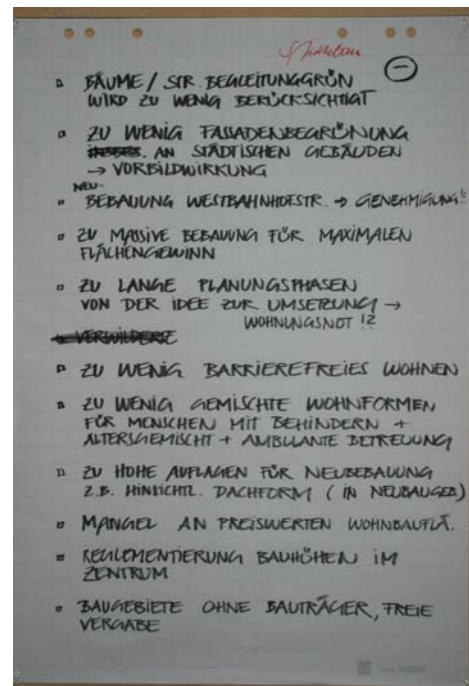 Städtebau
−
▫ BÄUME / STR. BEGLEITUNGGRÜN
WIRD ZU WENIG BERÜCKSICHTIGT
▫ ZU WENIG FASSADENBEGRÜNUNG
AN STÄDTISCHEN GEBÄUDEN
→ VORBILDWIRKUNG
NEU-
▫ BEBAUUNG WESTBAHNHOFSTR. → GENEHMIGUNG!!
▫ ZU MASSIVE BEBAUUNG FÜR MAXIMALEN
FLÄCHENGEWINN
▫ ZU LANGE PLANUNGSPHASEN
VON DER IDEE ZUR UMSETZUNG →
WOHNUNGSNOT !?
▫ ZU WENIG BARRIEREFREIES WOHNEN
▫ ZU WENIG GEMISCHTE WOHNFORMEN
FÜR MENSCHEN MIT BEHINDERN +
ALTERSGEMISCHT + AMBULANTE BETREUUNG
▫ ZU HOHE AUFLAGEN FÜR NEUBEBAUUNG
Z.B. HINSICHTL. DACHFORM ( IN NEUBAUGEB.)
▫ MANGEL AN PREISWERTEN WOHNBAUFLÄ.
▫ REGLEMENTIERUNG BAUHÖHEN IM
ZENTRUM
▫ BAUGEBIETE OHNE BAUTRÄGER, FREIE
VERGABE